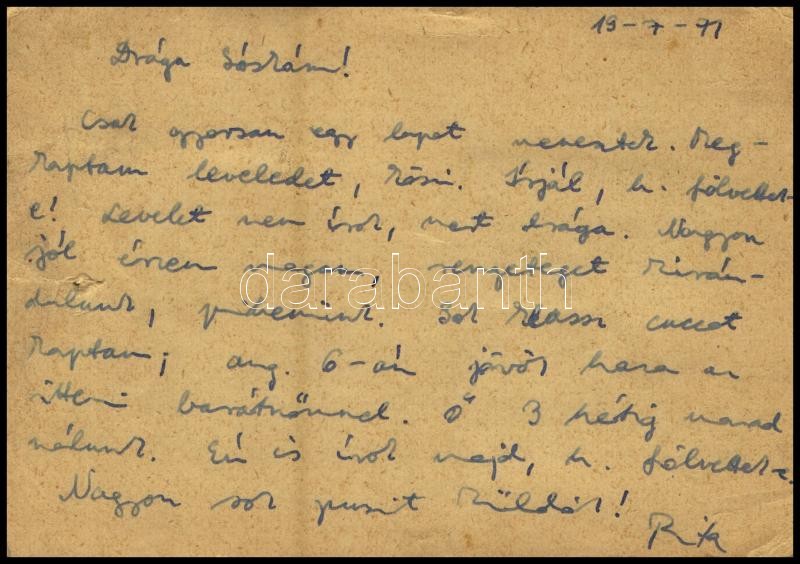 19-7-71
Drága
Csak gyorsan egy lapot neked. Meg-
kaptam leveledet, köszi. Írjál, h. fölvettek-
e! Levelet nem írok, mert drága. Nagyon
jól érzem magam, rengeteget kirán-
dulunk, Sok klassz cuccot
kaptam; aug. 6-án jövök haza az
itteni barátnőmmel. Ő 3 hétig marad
nálunk. Én is írok majd, h. fölvettek-e.
Nagyon sok puszit küldök!
darabanth